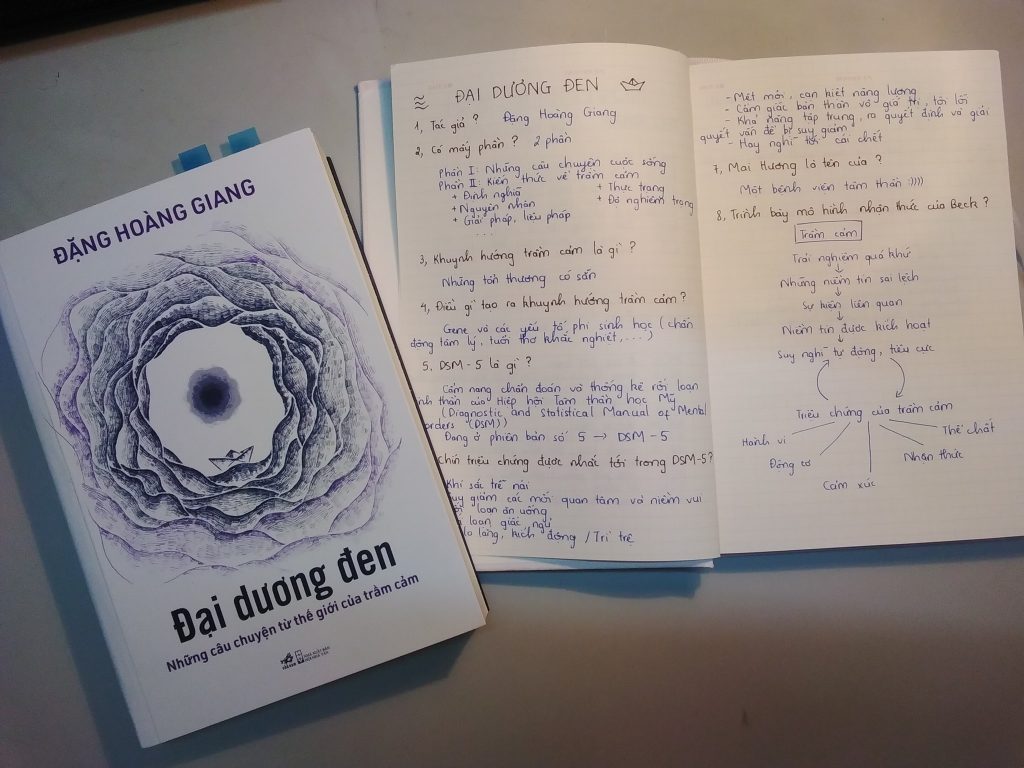 ĐẶNG HOÀNG GIANG
Đại dương đen
Những câu chuyện từ thế giới của trầm cảm
NHÃ NAM
NHÀ XUẤT BẢN
HỘI NHÀ VĂN
ĐẠI DƯƠNG ĐEN
1, Tác giả ? Đặng Hoàng Giang
2, Có mấy phần ? 2 phần
Phần I: Những câu chuyện cuộc sống
Phần II: Kiến thức về trầm cảm
+ Định nghĩa + Thực trạng
+ Nguyên nhân + Độ nghiêm trọng
+ Giải pháp, liệu pháp
....
3, Khuynh hướng trầm cảm là gì ?
Những tổn thương có sẵn
4, Điều gì tạo ra khuynh hướng trầm cảm ?
Gene và các yếu tố phi sinh học (chấn
động tâm lý, tuổi thơ khắc nghiệt,....)
5. DSM - 5 là gì ?
Cẩm nang chẩn đoán và thống kê rối loạn
thần của Hiệp hội Tâm thần học Mỹ
(Diagnostic and Statistical Manual of Mental
orders (DSM))
Đang ở phiên bản số 5 → DSM - 5
Chín triệu chứng được nhắc tới trong DSM-5?
Khí sắc trễ nải
uy giảm các mối quan tâm và niềm vui
loạn ăn uống
loạn giấc ngủ
lo lắng, kích động / Trì trệ
- Mệt mỏi, cạn kiệt năng lượng
- Cảm giác bản thân vô giá trị, tội lỗi
- Khả năng tập trung, ra quyết định và giải
quyết vấn đề bị suy giảm
- Hay nghĩ tới cái chết
7, Mai Hương là tên của ?
Một bệnh viện tâm thần :))))
8, Trình bày mô hình nhận thức của Beck ?
Trầm cảm
Trải nghiệm quá khứ
↓
Những niềm tin sai lệch
↓
Sự kiện liên quan
↓
Niềm tin được kích hoạt
↓
Suy nghĩ tự động, tiêu cực
Triệu chứng của trầm cảm
Hành vi
Động cơ
Cảm xúc
Nhận thức
Thể chất